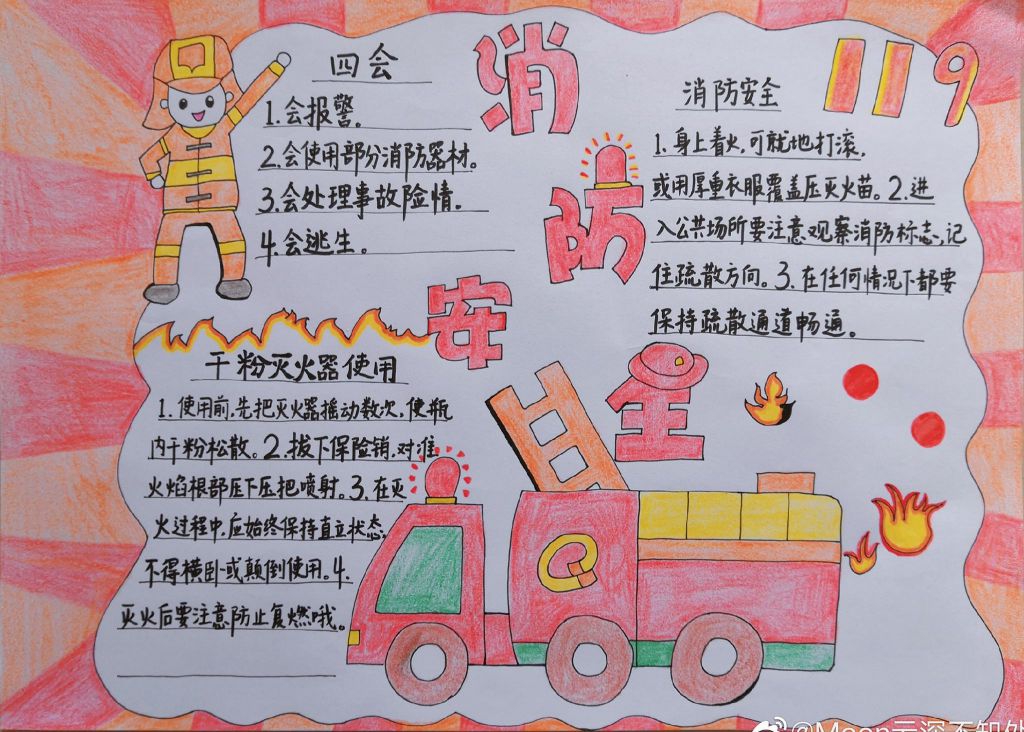 消
防
安
全
119
四会
1.会报警。
2.会使用部分消防器材。
3.会处理事故险情。
4.会逃生。
消防安全
1.身上着火,可就地打滚,
或用厚重衣服覆盖压灭火苗。2.进
入公共场所要注意观察消防标志,记
住疏散方向。3.在任何情况下都要
保持疏散通道畅通。
干粉灭火器使用
1.使用前,先把灭火器摇动数次,使瓶
内干粉松散。2.拔下保险销,对准
火焰根部压下压把喷射。3.在灭
火过程中,应始终保持直立状态,
不得横卧或颠倒使用。4.
灭火后要注意防止复燃哦。
@Moon云深不知处